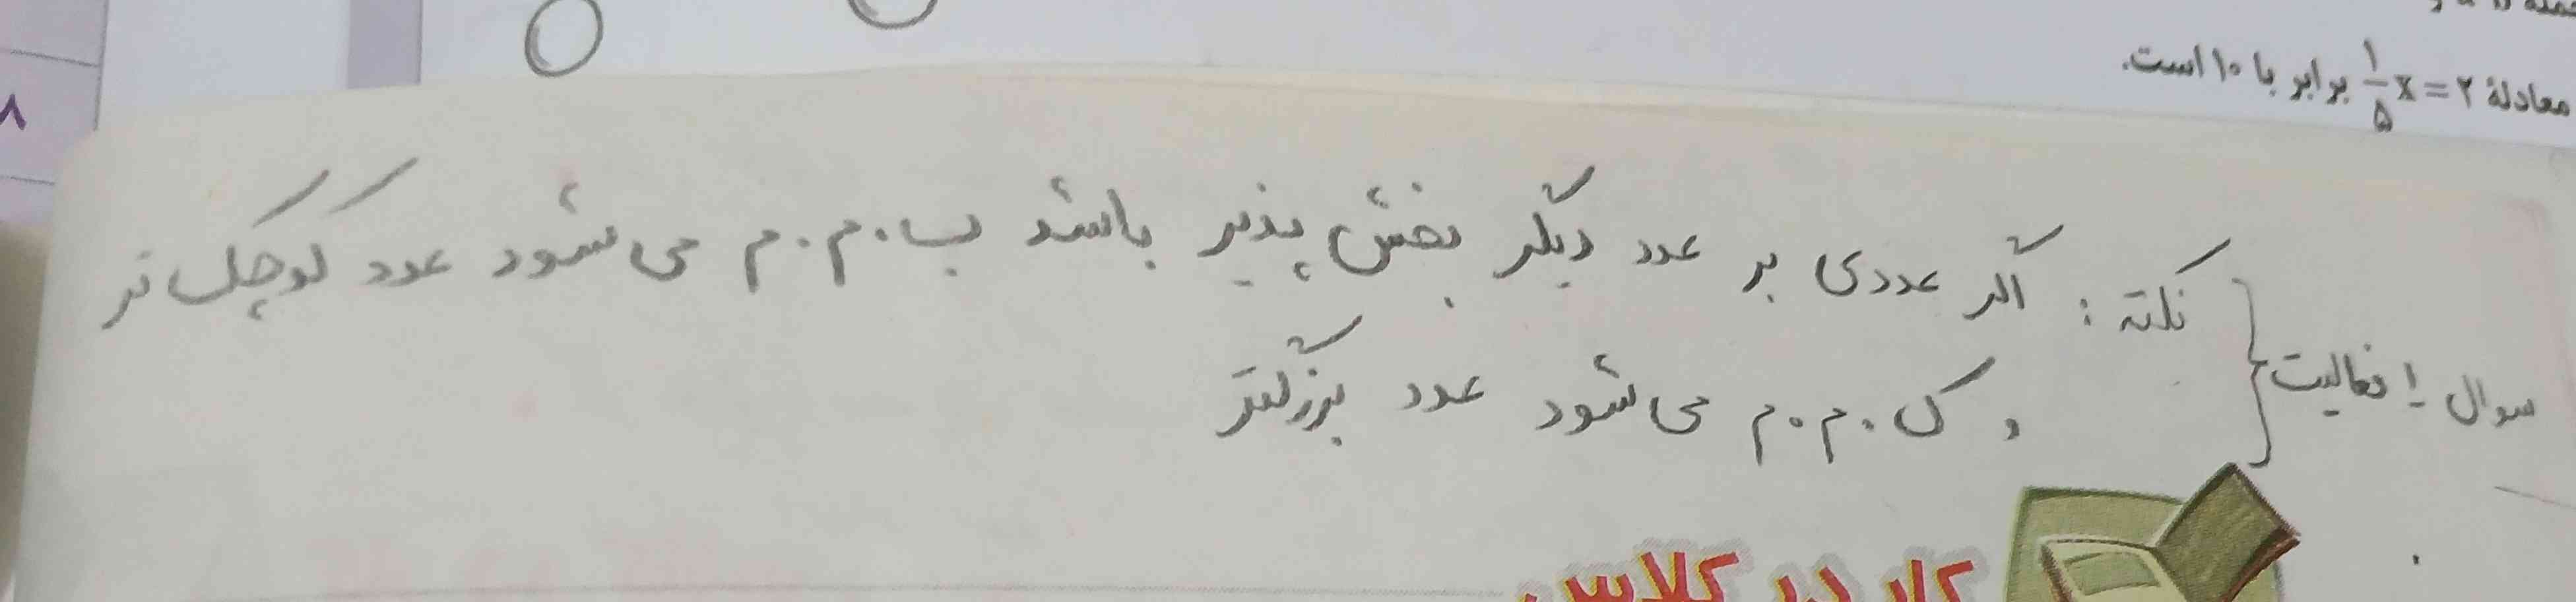 معادلهٔ ۲ = x ۱/۵ برابر با ۱۰ است.
۸
نکته : اگر عددی بر عدد دیگر بخش پذیر باشد ب.م.م می شود عدد کوچک تر
سوال ۱ فعالیت
و ک.م.م می شود عدد بزرگتر
کار در کلاس